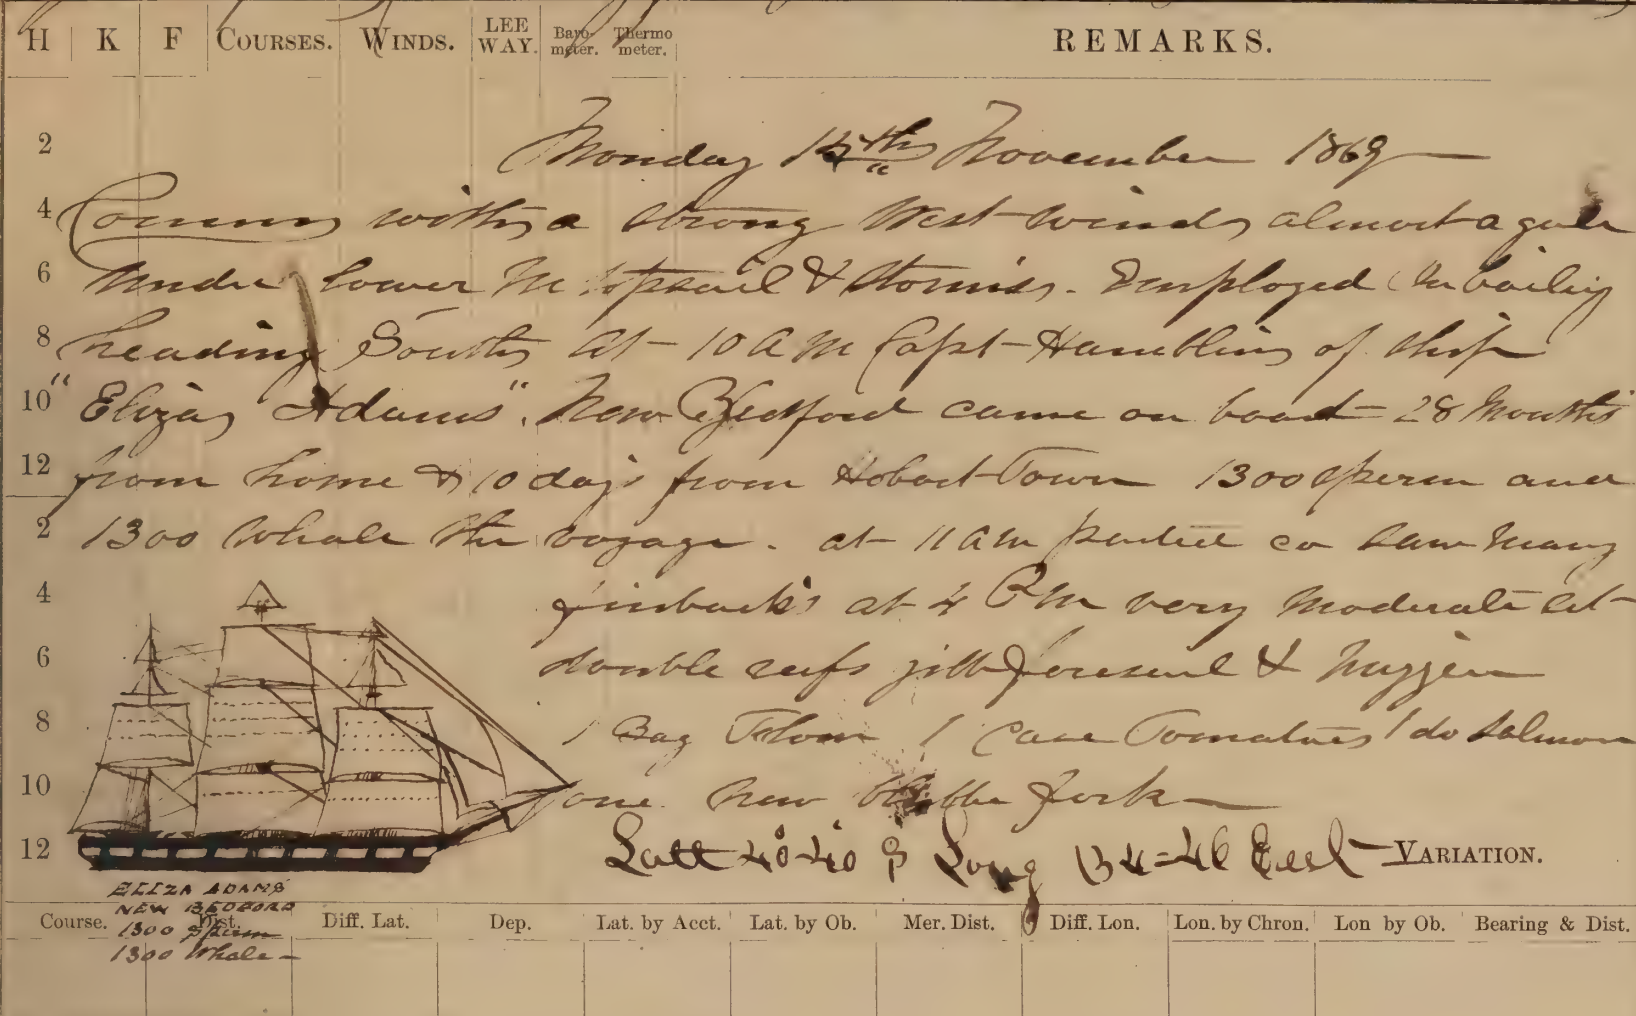 H K F COURSES. WINDS. LEE WAY. Barometer. Thermometer. REMARKS.
2
Monday 15th November 1869
4 Comms with a strong West winds almost a gale
6 under lower M topsail & Stormiss. Employed in
8 heading South at 10 AM Capt Hamblin of ship
10 "Eliza Adams". New Bedford came on board 28 Months
12 from home & 10 days from Hobart Town 1300 Sperm and
2 1300 Whale the voyage. at 11 AM parted co saw many
4 finbacks at 4 PM very moderate set
6 double reefs jibb foresail & Mizzen
8 1 Bag Flour 1 Case Tomatoes 1 do Salmon
10 one new blubber fork
12 Latt 40-40 S Long 134-46 East VARIATION.
ELIZA ADAMS
NEW BEDFORD
1300 Sperm
1300 Whale
Course. Dist. Diff. Lat. Dep. Lat. by Acct. Lat. by Ob. Mer. Dist. Diff. Lon. Lon. by Chron. Lon by Ob. Bearing & Dist.